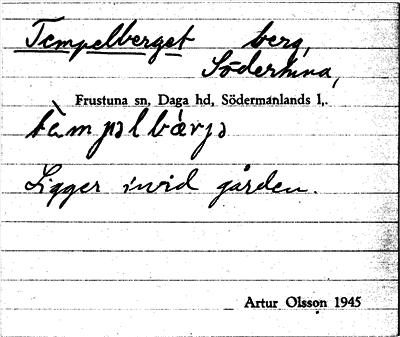 Tempelberget berg,
Södertuna,
Frustuna sn, Daga hd, Södermanlands l,.
tämpəlbärjə
Ligger invid gården.
Artur Olsson 1945